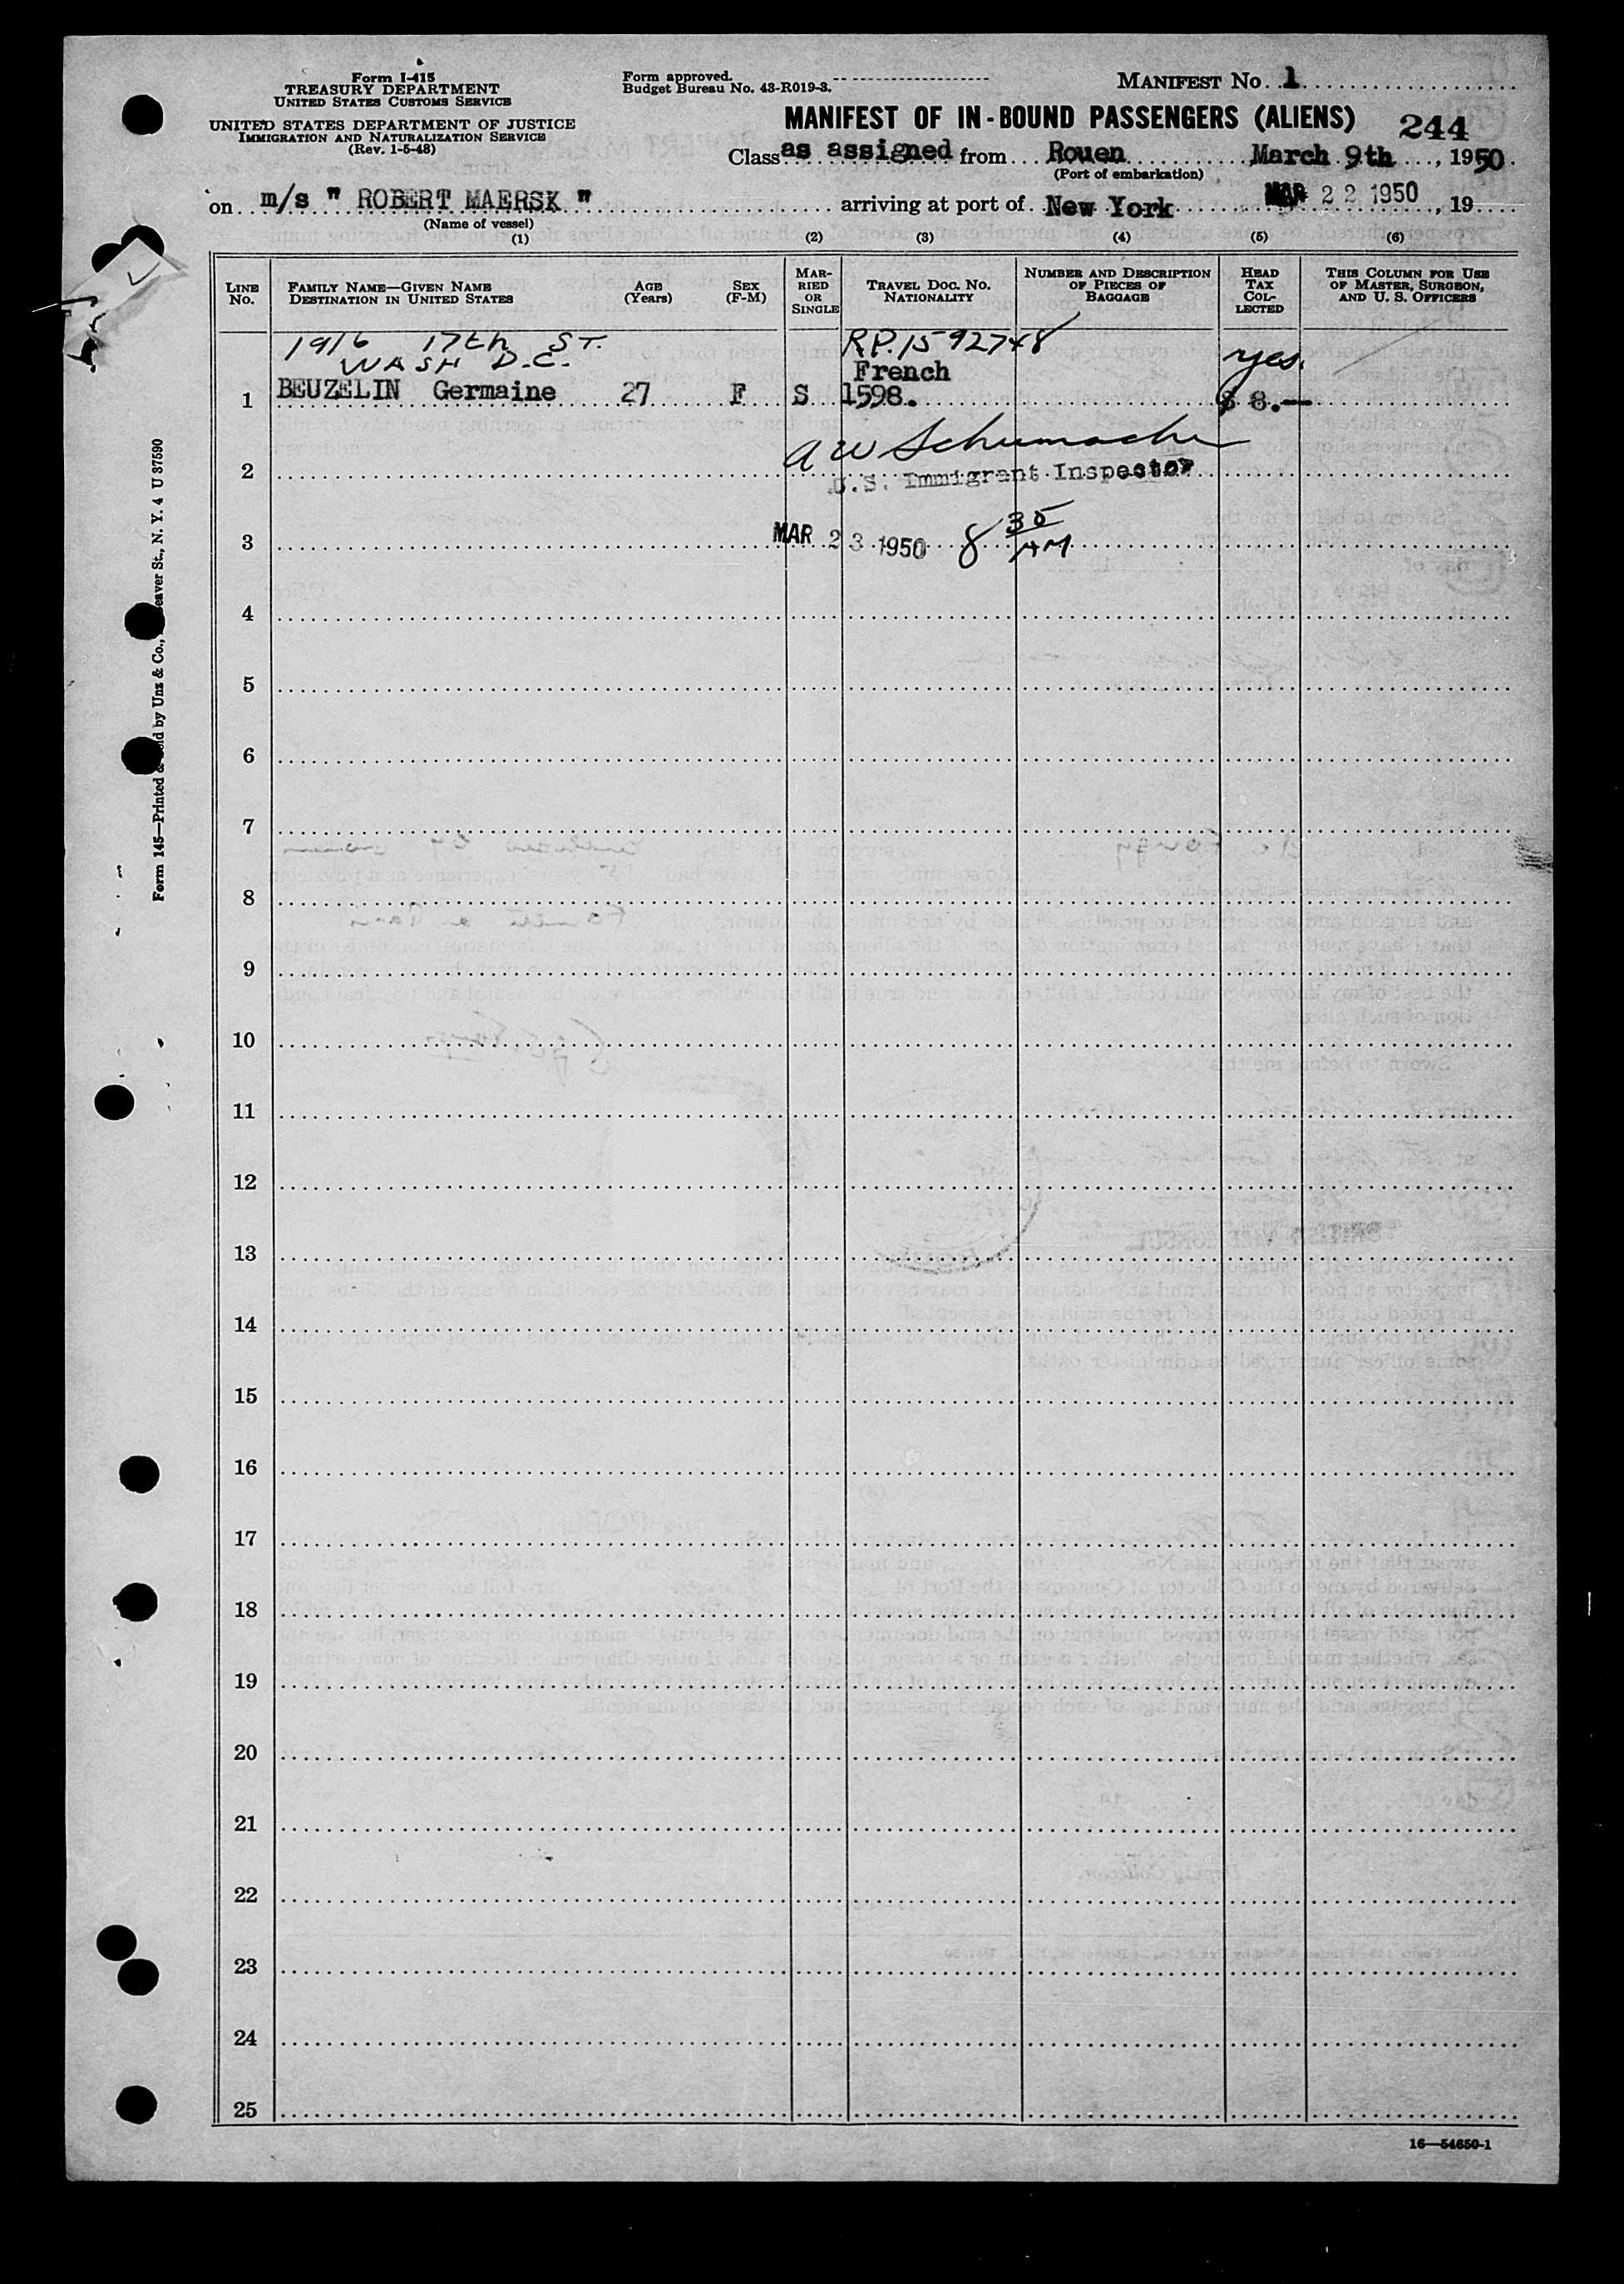 Form I-415
TREASURY DEPARTMENT
UNITED STATES CUSTOMS SERVICE
UNITED STATES DEPARTMENT OF JUSTICE
IMMIGRATION AND NATURALIZATION SERVICE
(Rev. 1-5-48)
Form approved.
Budget Bureau No. 43-R019-3.
MANIFEST No. 1
MANIFEST OF IN-BOUND PASSENGERS (ALIENS) 244
Class as assigned from Rouen March 9th, 1950.
(Port of embarkation)
on m/s " ROBERT MAERSK " arriving at port of New York MAR 22 1950, 19
(Name of vessel)
(1) (2) (3) (4) (5) (6)
LINE No. FAMILY NAME—GIVEN NAME DESTINATION IN UNITED STATES AGE (Years) SEX (F-M) MARRIED OR SINGLE TRAVEL DOC. NO. NATIONALITY NUMBER AND DESCRIPTION OF PIECES OF BAGGAGE HEAD TAX COLLECTED THIS COLUMN FOR USE OF MASTER, SURGEON, AND U. S. OFFICERS
1916 17th ST. RP.
WASH D.C. yes.
French
1 BEUZELIN Germaine 27 F S 1598. $ 8.—
A W Schumacher
2 U.S. Immigrant Inspector
3 MAR 23 1950 8 30 AM
4
5
6
7
8
9
10
11
12
13
14
15
16
17
18
19
20
21
22
23
24
25
16—54650-1
Form 145—Printed & Sold by Unz & Co., Beaver St., N. Y. 4 U 37590